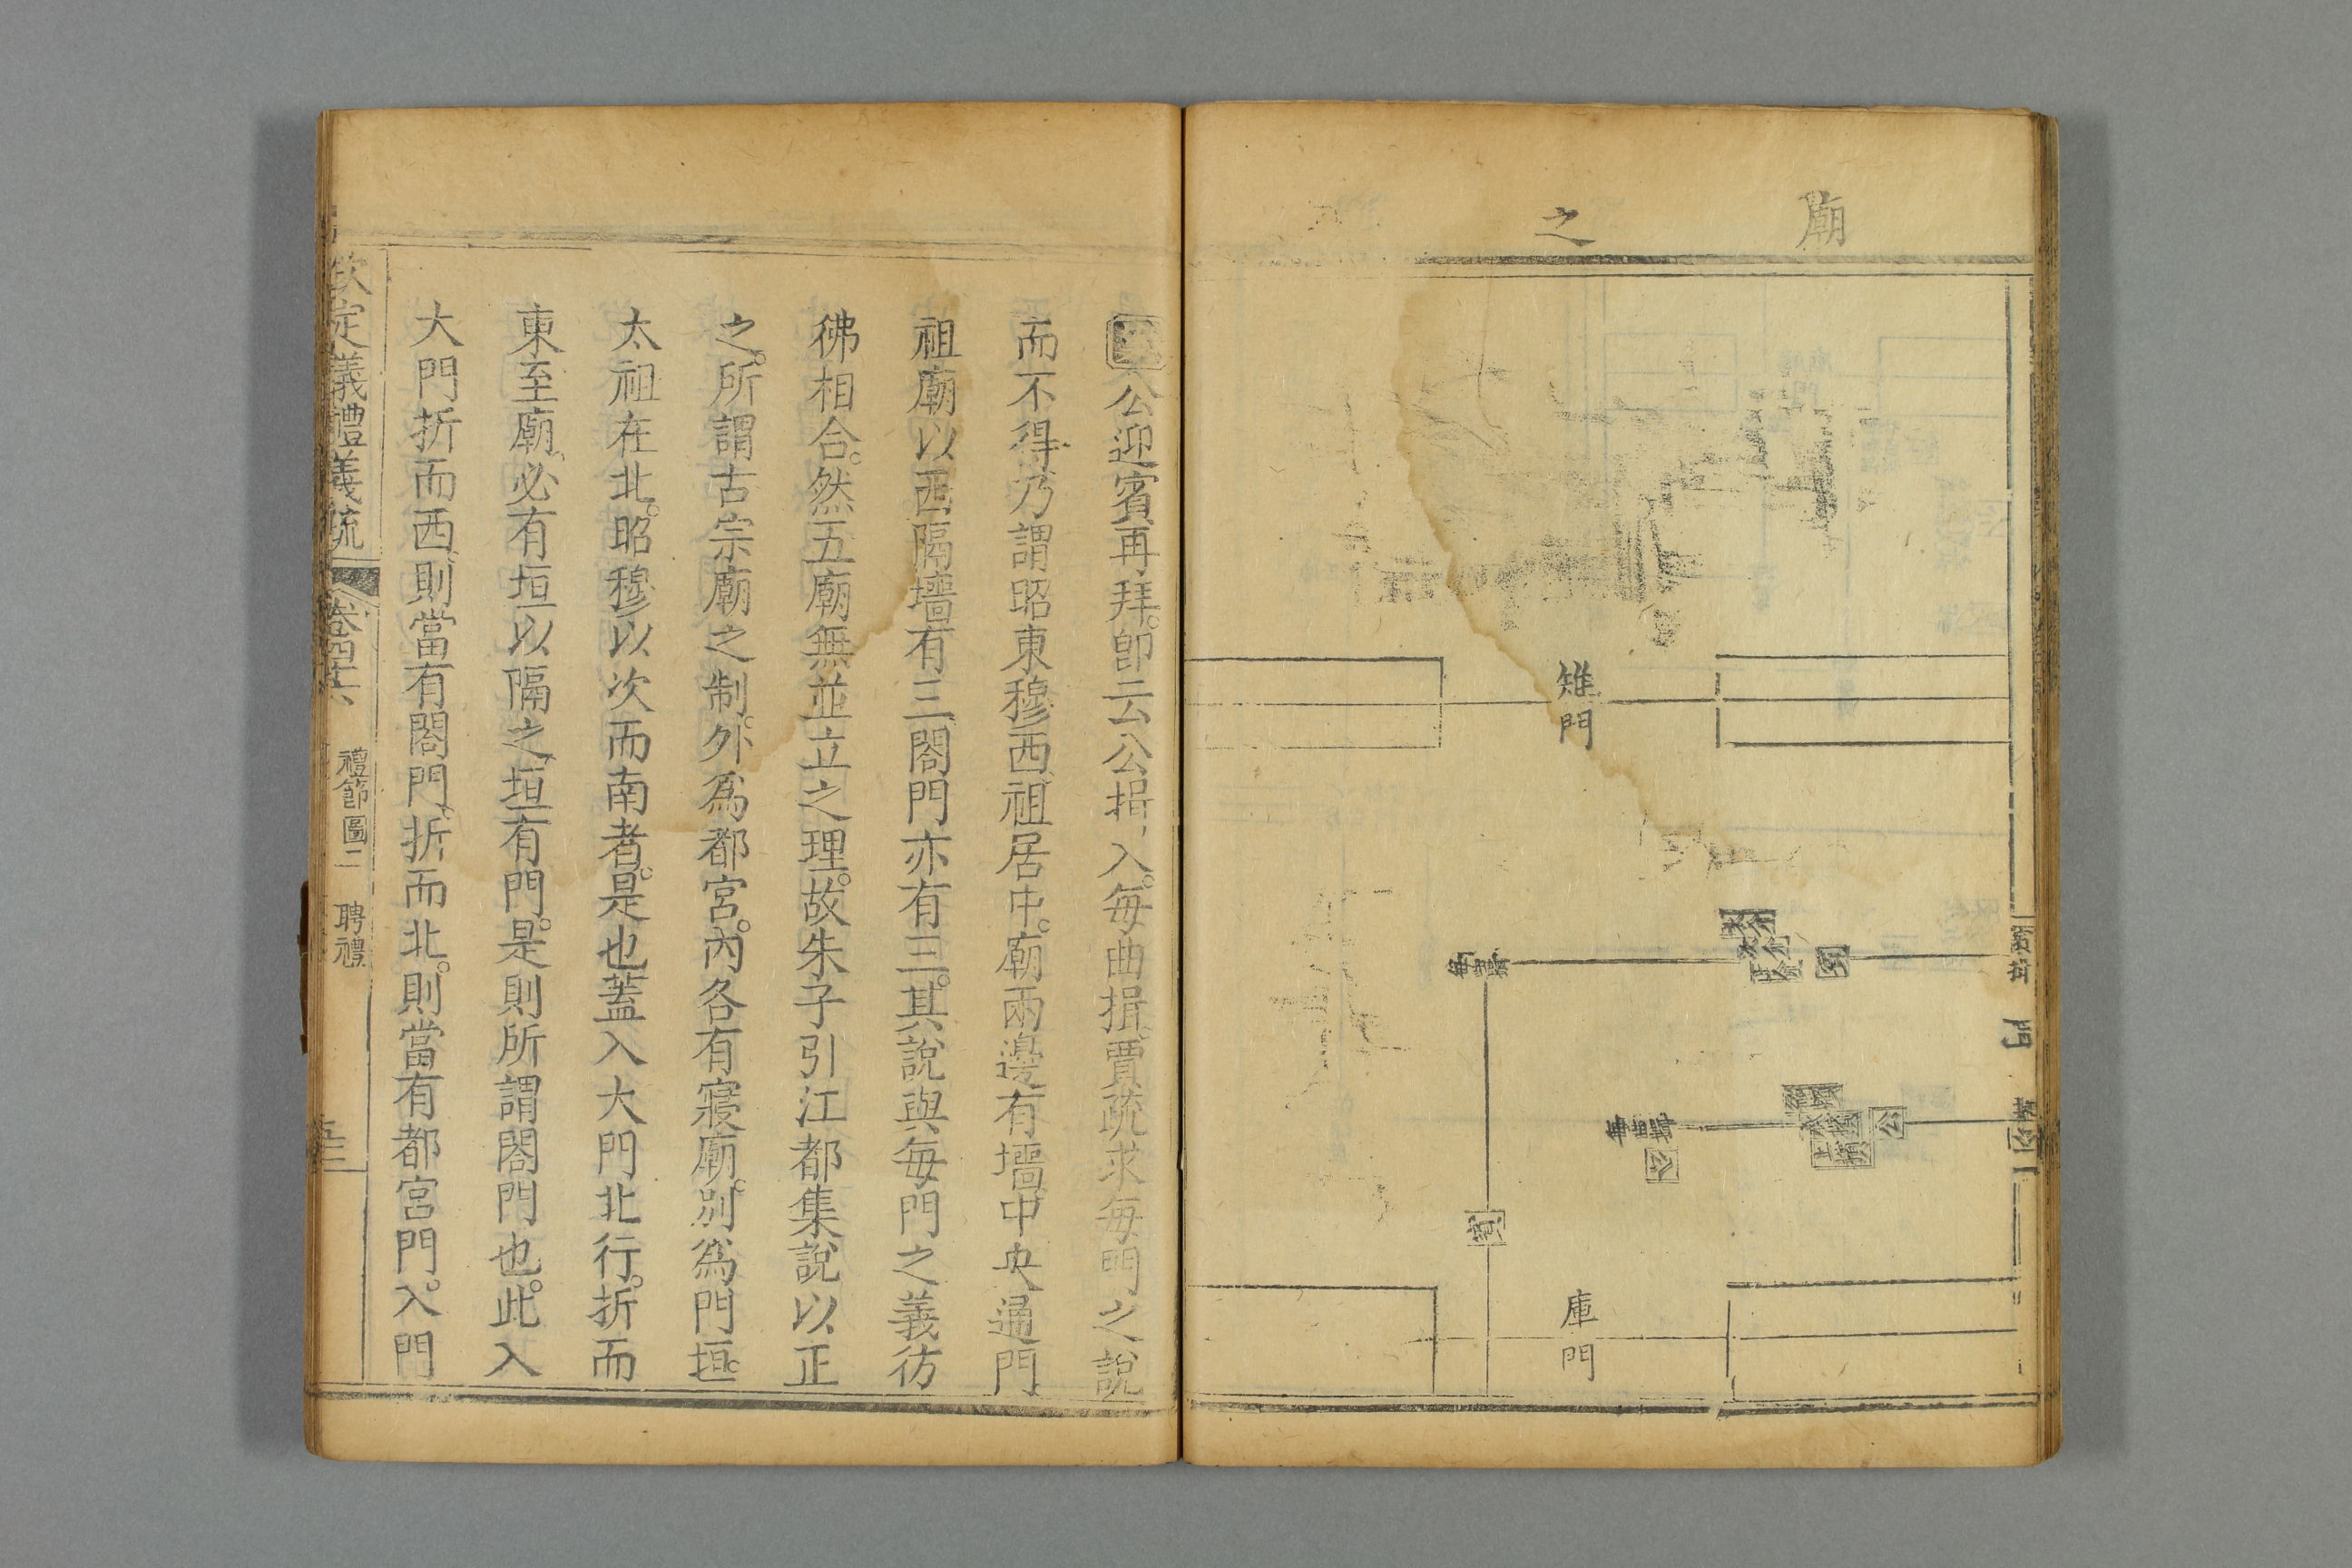 廟
之
雉門
庫門
公迎賓再拜。卽云公揖入。每曲揖。賈疏求每門之說
而不得乃謂昭東穆西祖居中。廟兩邊有墻中央通門
祖廟以西隔墻有三閤門亦有三。其說與每門之義彷
彿相合。然五廟無並立之理。故朱子引江都集說以正
之。所謂古宗廟之制。外爲都宮。內各有寢廟。別爲門垣。
太祖在北。昭穆以次而南者。是也蓋入大門北行。折而
東至廟、必有垣以隔之、垣有門。是則所謂閤門也。此入
大門折而西、則當有閤門。折而北。則當有都宮門。入門
欽定儀禮義疏
卷四十六
禮節圖二
聘禮